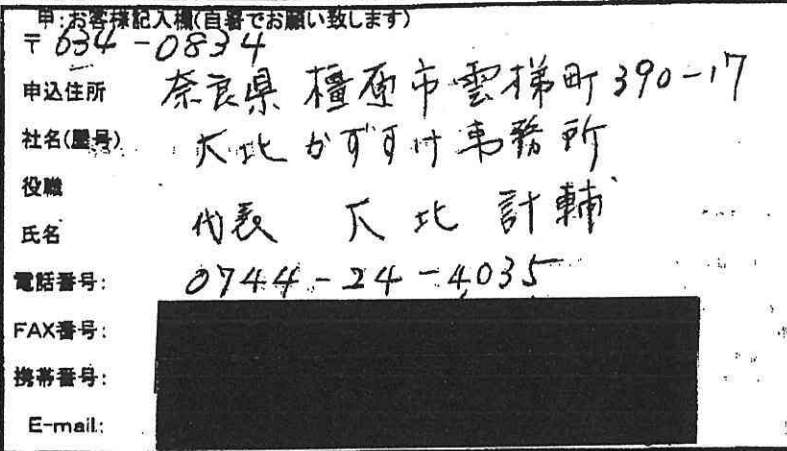 甲:お客様記入欄(自署でお願い致します)
〒634-0834
申込住所 奈良県橿原市雲梯町390-17
社名(屋号) 大北かずすけ事務所
役職
氏名 代表 大北計輔
電話番号: 0744-24-4035
FAX番号:
携帯番号:
E-mail: